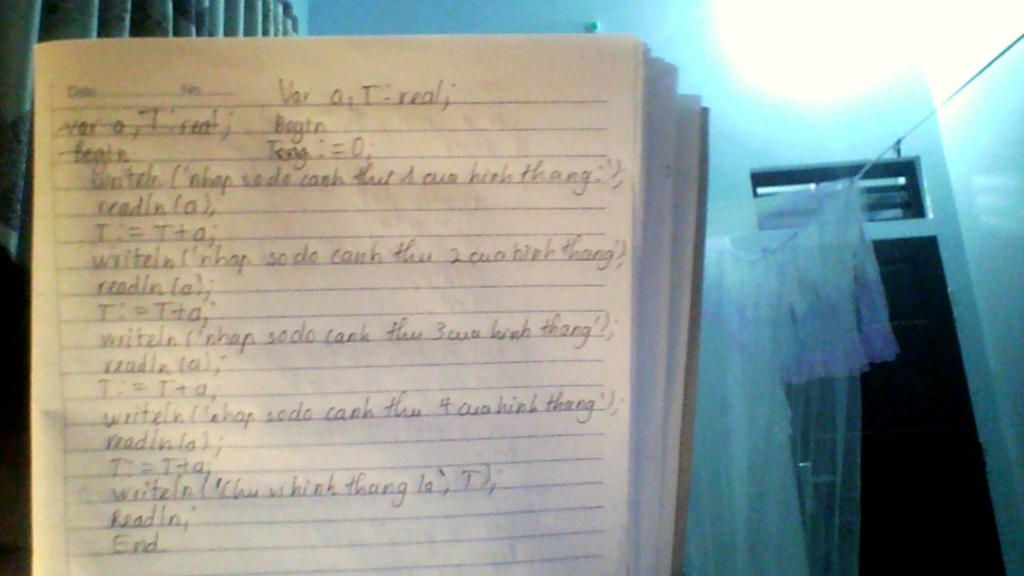 Date No
Var a, T : real;
var a, T : real; Begin
Begin Tong := 0;
writeln ('nhap so do canh thu 1 cua hinh thang:');
readln (a);
T := T+a;
writeln ('nhap so do canh thu 2 cua hinh thang');
readln (a);
T := T+a;
writeln ('nhap so do canh thu 3 cua hinh thang');
readln (a);
T := T+a;
writeln ('nhap so do canh thu 4 cua hinh thang');
readln (a);
T := T+a;
writeln ('Chu vi hinh thang la', T);
Readln;
End.